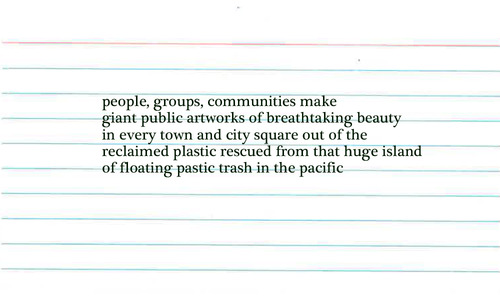 people, groups, communities make
giant public artworks of breathtaking beauty
in every town and city square out of the
reclaimed plastic rescued from that huge island
of floating pastic trash in the pacific